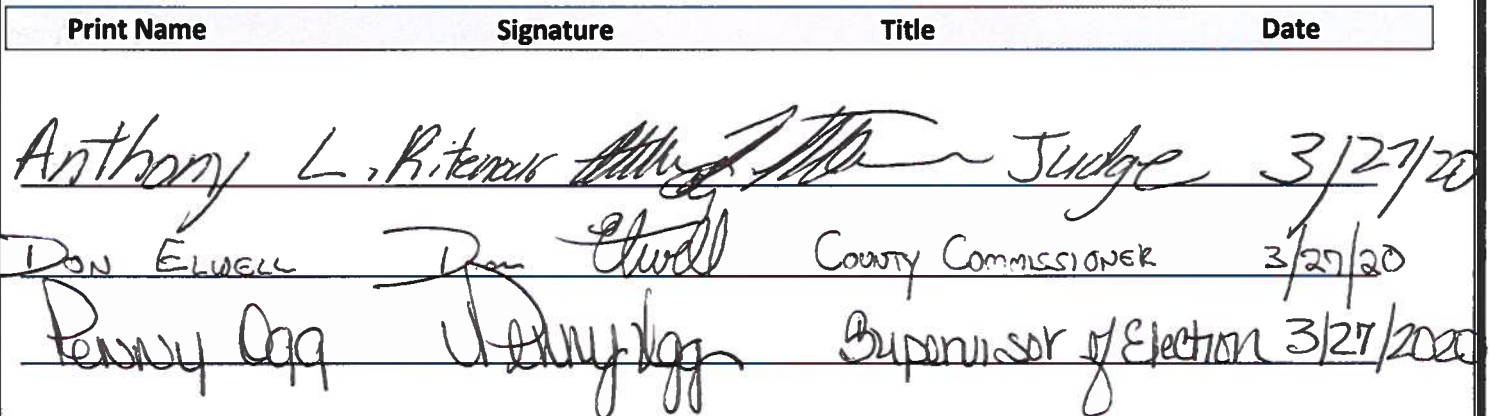 Print Name Signature Title Date
Anthony L. Ritenour Judge 3/27/20
DON ELWELL Don Elwell COUNTY COMMISSIONER 3/27/20
Penny Ogg Penny Ogg Supervisor of Election 3/27/2020